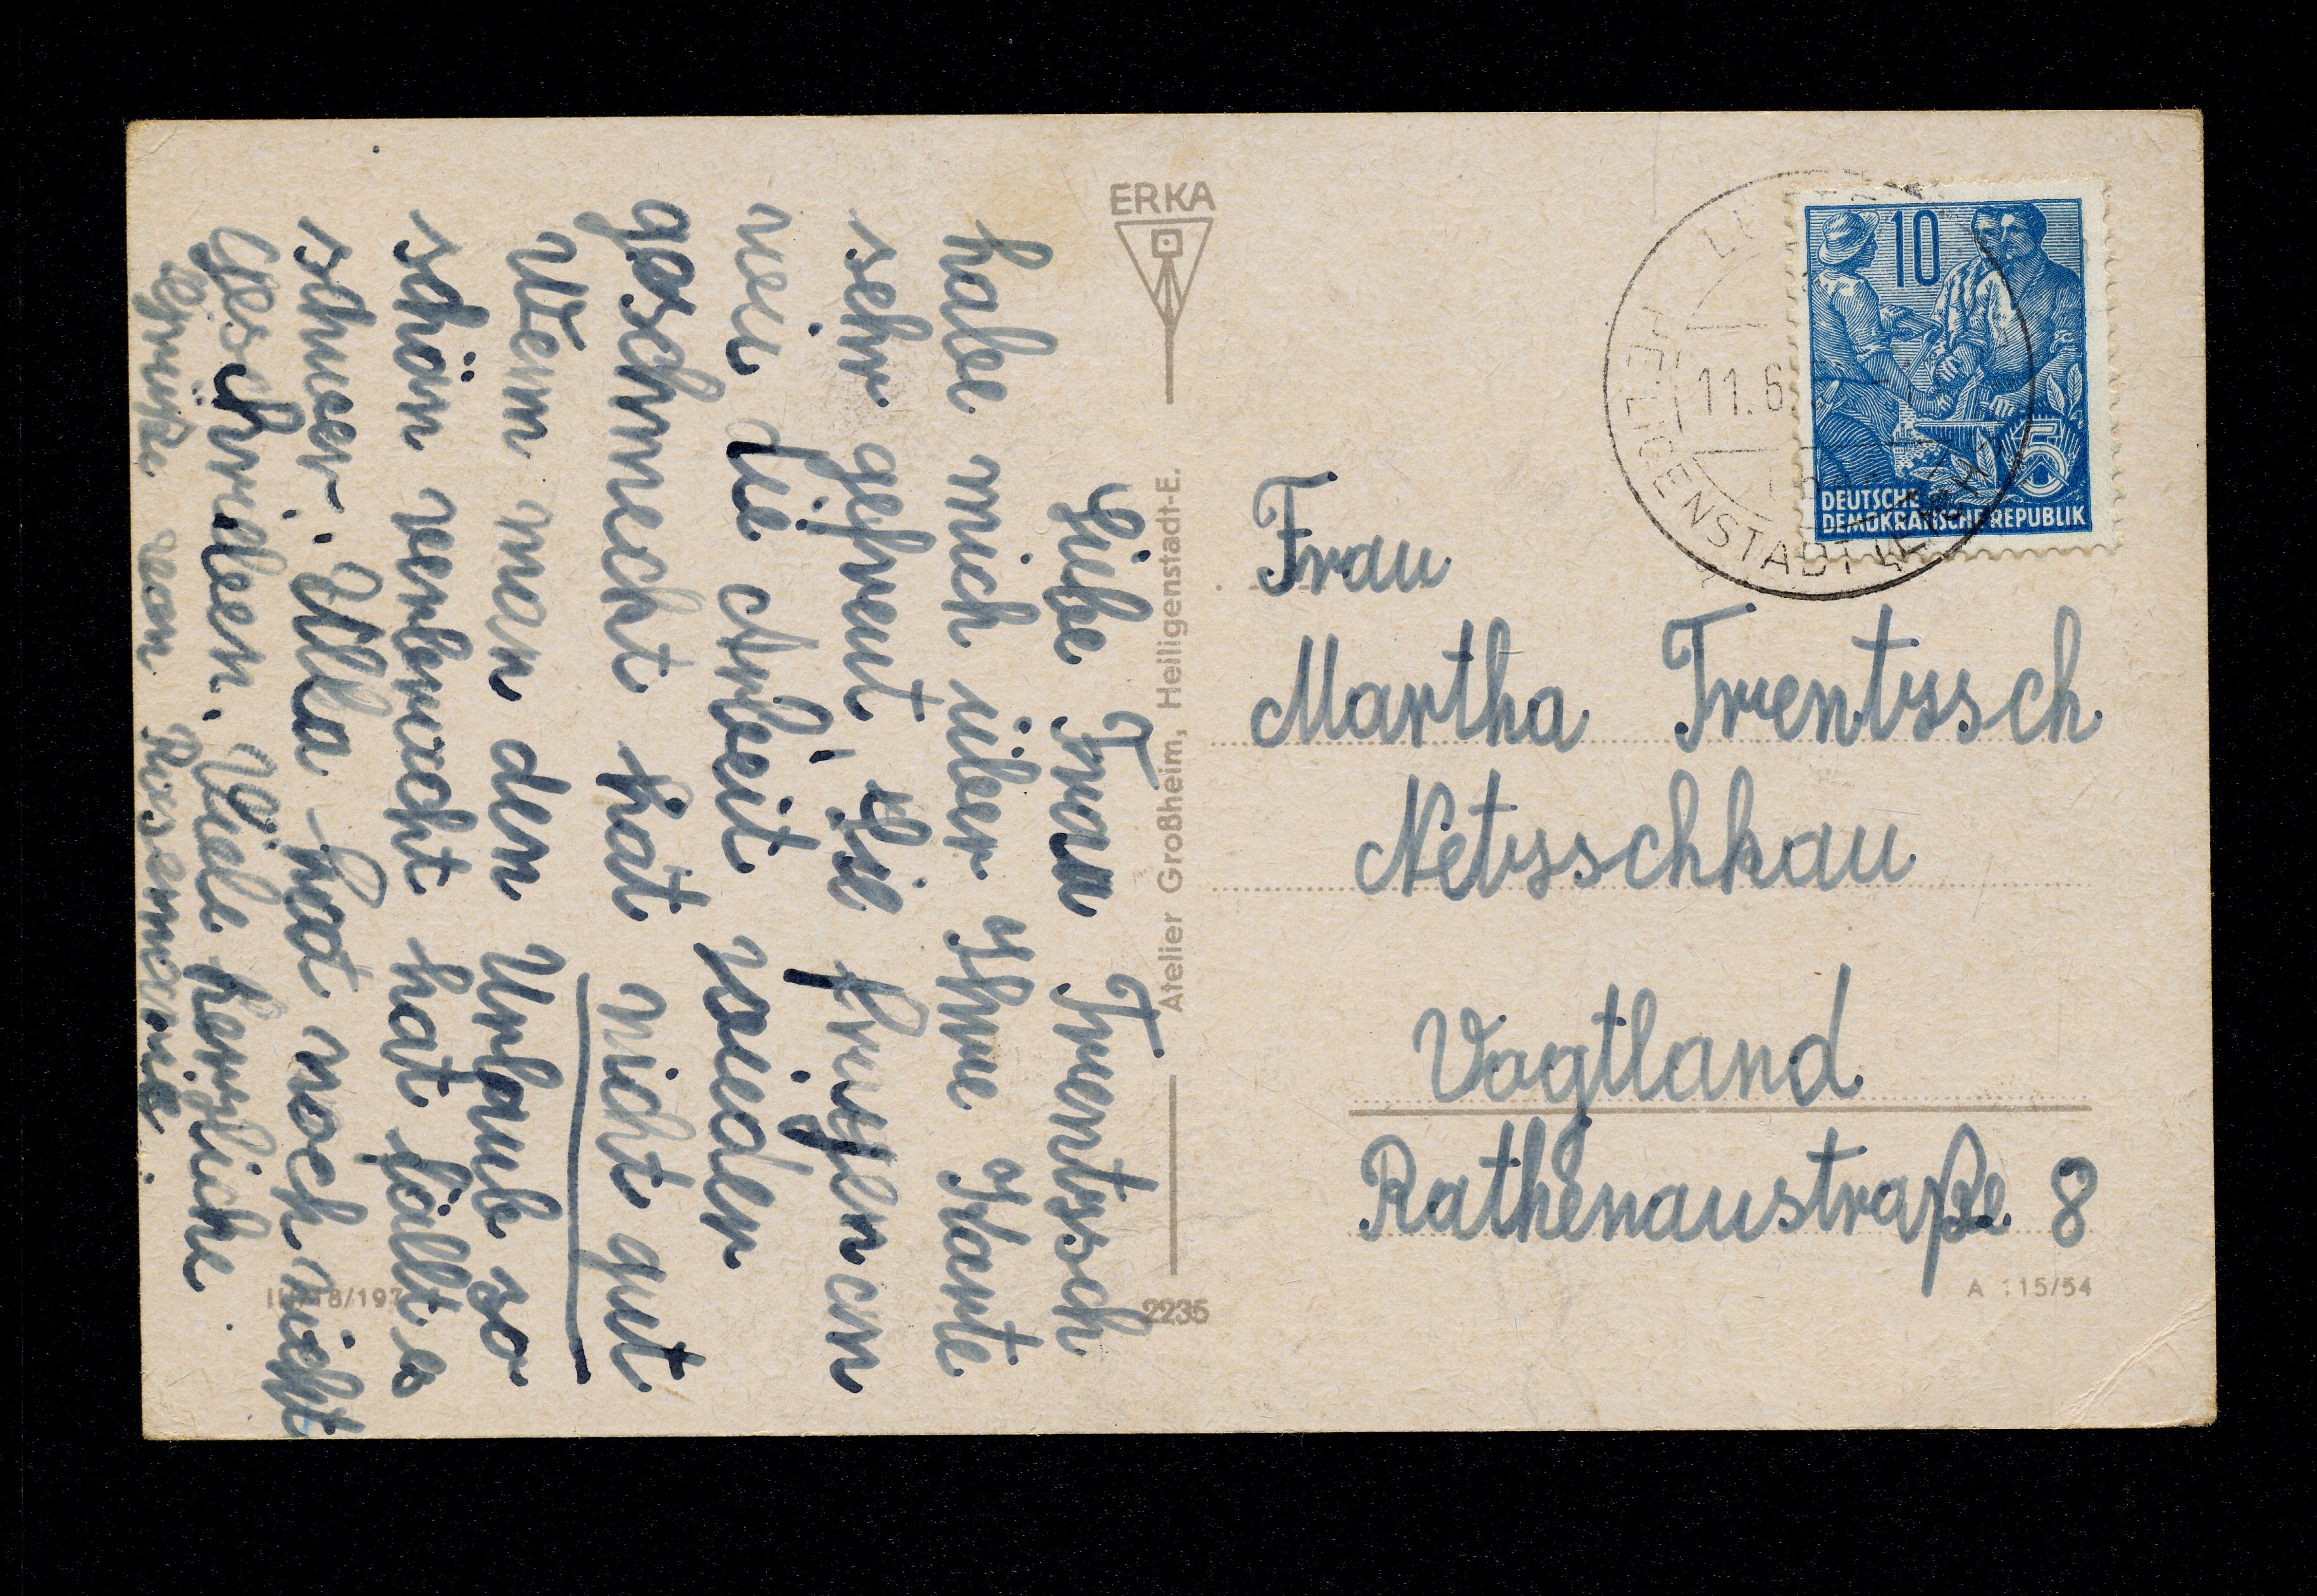 Liebe Frau Trentzsch
habe mich über Ihre Karte
sehr gefreut, Sie fragen an
wie die Arbeit wieder
geschmeckt hat nicht gut
Wenn man den Urlaub so
schön verbracht hat fällt es
schwer. Ulla hat noch nicht
Geschrieben. Viele herzliche
Grüße von Rosemarie.
ERKA
Atelier Großheim, Heiligenstadt-E.
2235
10
5
DEUTSCHE
DEMOKRATISCHE REPUBLIK
11.6.
HEILIGENSTADT
Frau
Martha Trentzsch
Netzschkau
Vogtland
Rathenaustraße 8
A 115/54